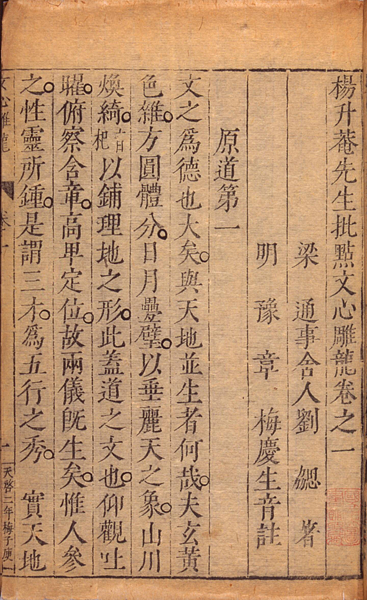 楊升菴先生批點文心雕龍卷之一
梁通事舍人劉勰著
明豫章梅慶生音註
原道第一
文之爲德也大矣與天地並生者何哉夫玄黃
色雜方圓體分日月疊璧以垂麗天之象山川
煥綺以鋪理地之形此蓋道之文也仰觀吐
曜俯察含章高卑定位故兩儀旣生矣惟人參
之性靈所鍾是謂三才爲五行之秀實天地
文心雕龍 卷一 一 天啓二年梅子庾